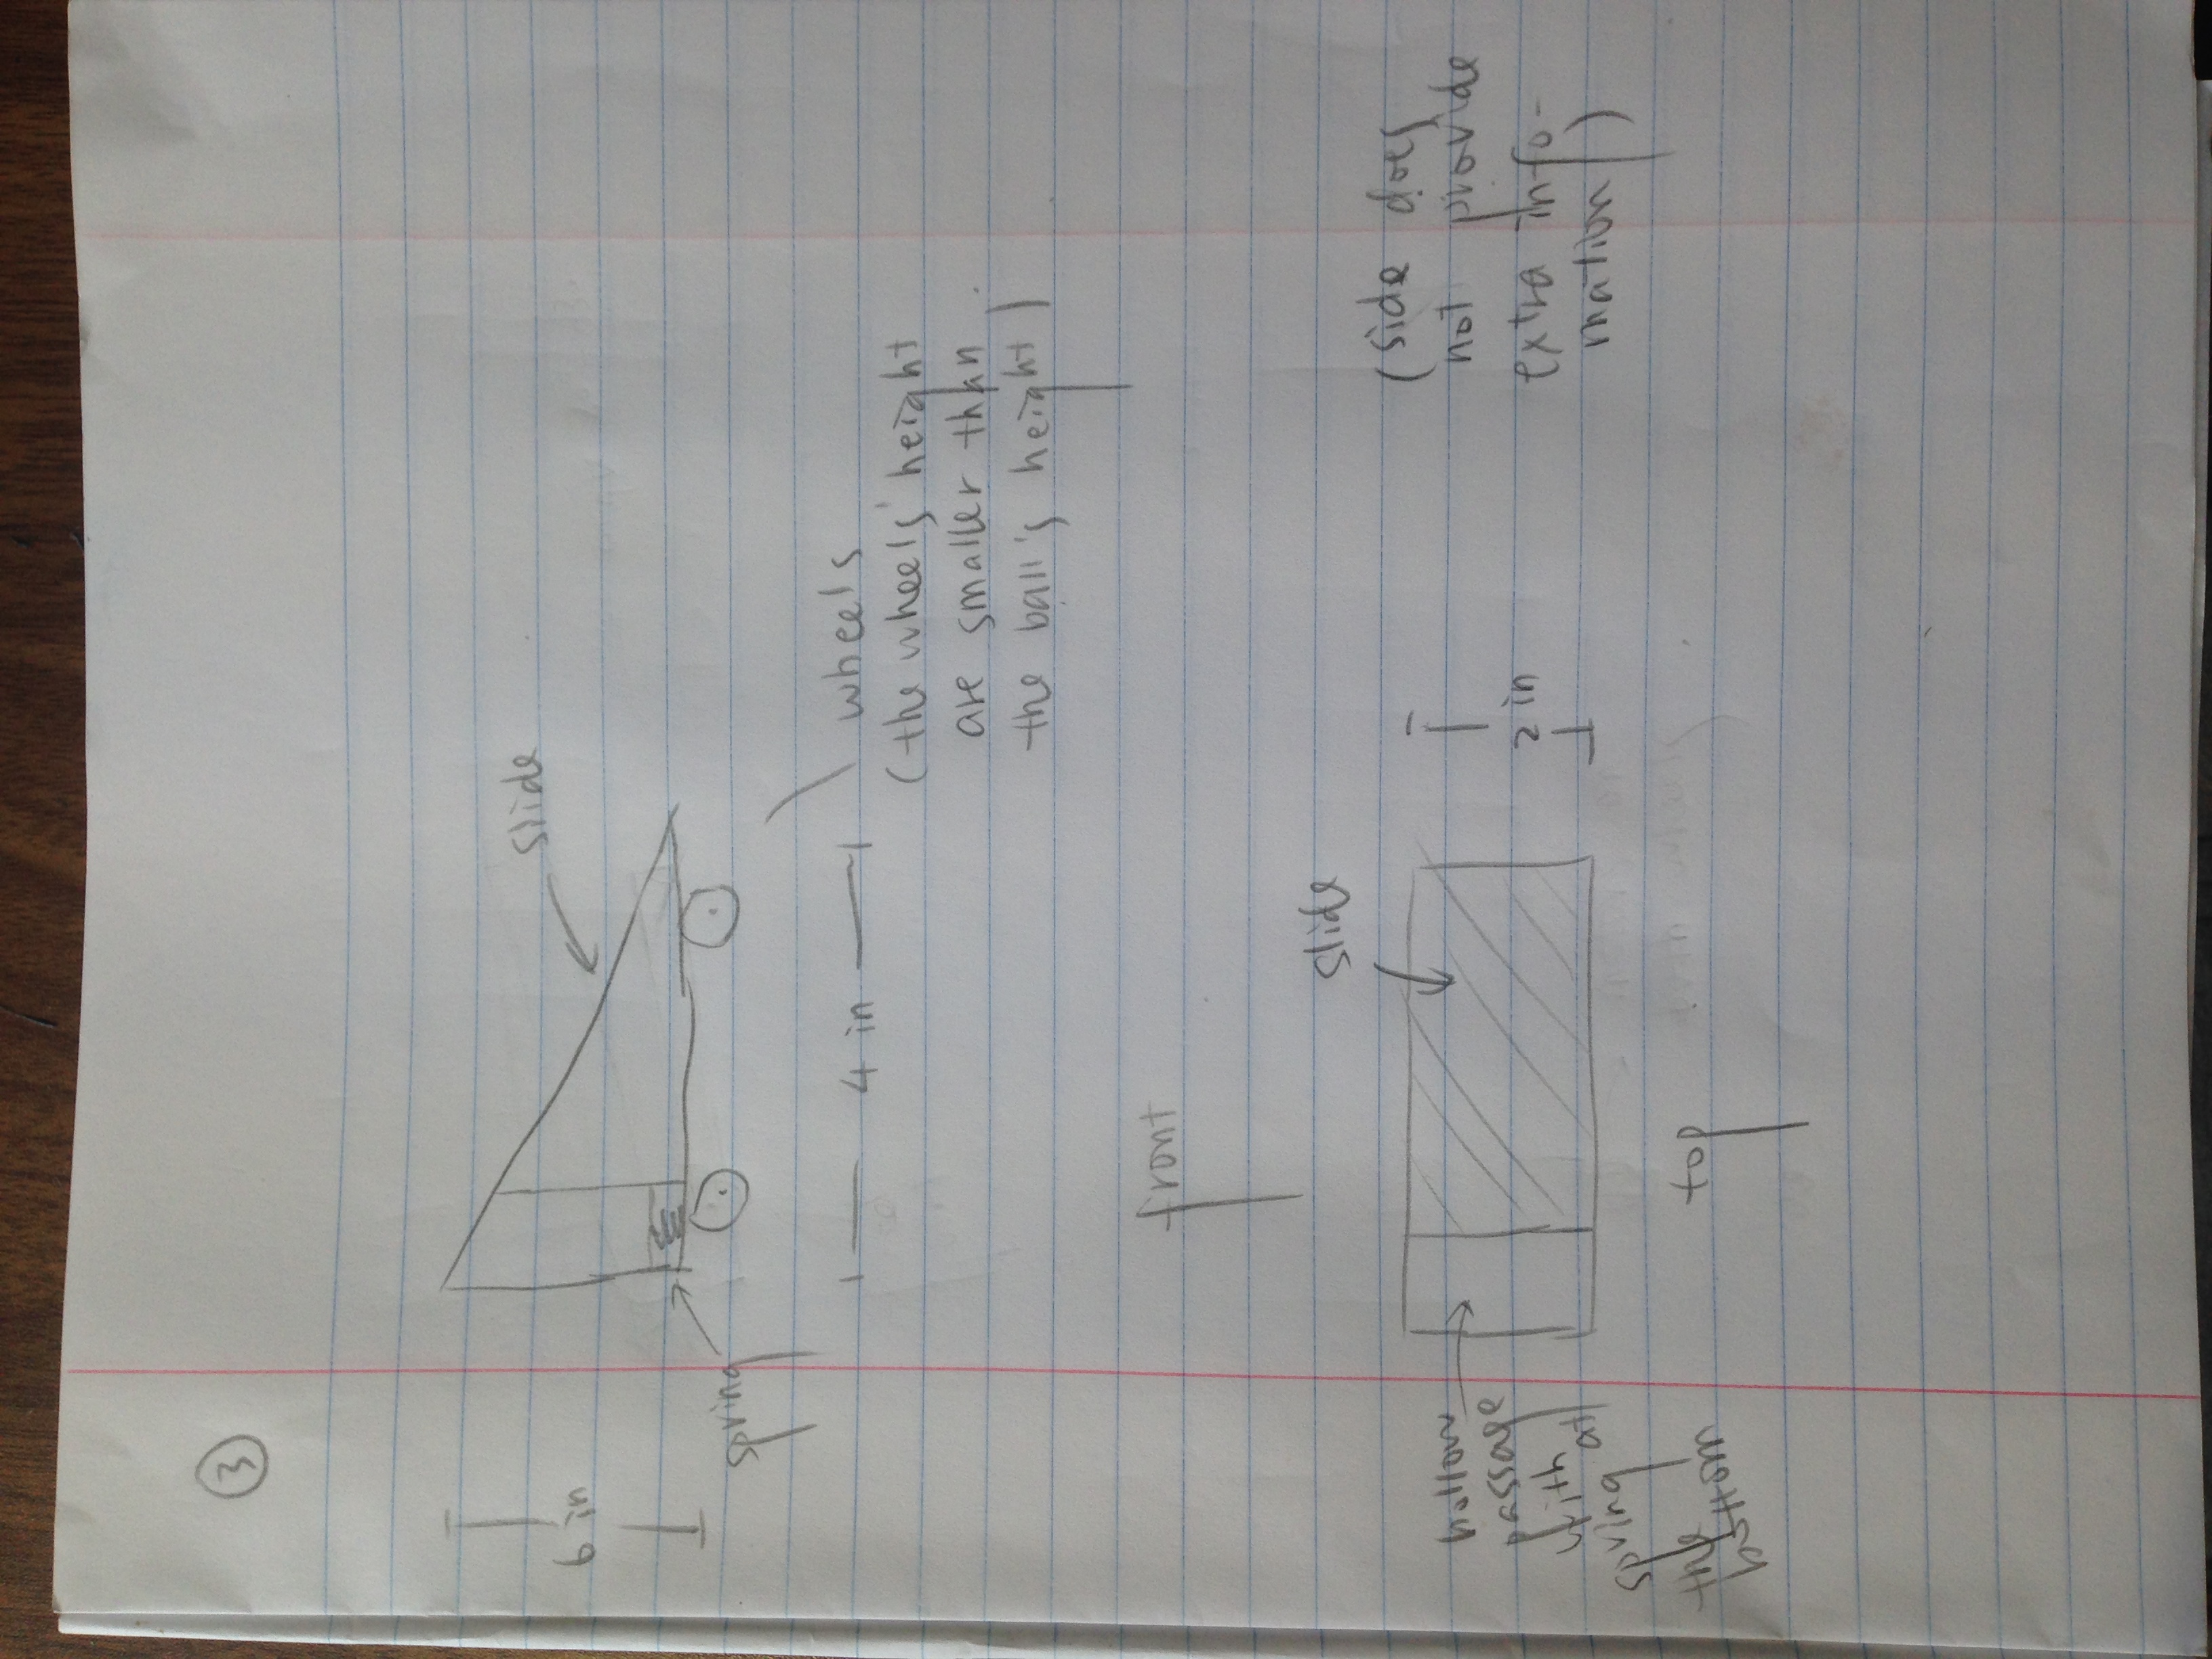 3
slide
6 in
spring
4 in
wheels
(the wheels' height
are smaller than
the ball's height)
front
slide
hollow
passage
with
spring at
the
bottom
2 in
(side does
not provide
extra info-
mation)
top